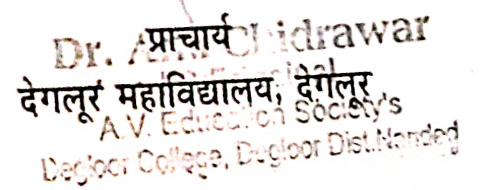 प्राचार्य
Dr. Chidrawar
देगलूर महाविद्यालय, देगलूर
A.V. Education Society's
Degloor College, Degloor Dist.Nanded